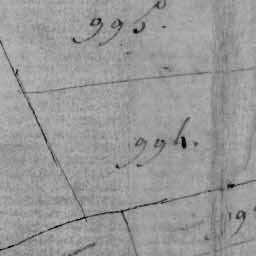 995.
994.